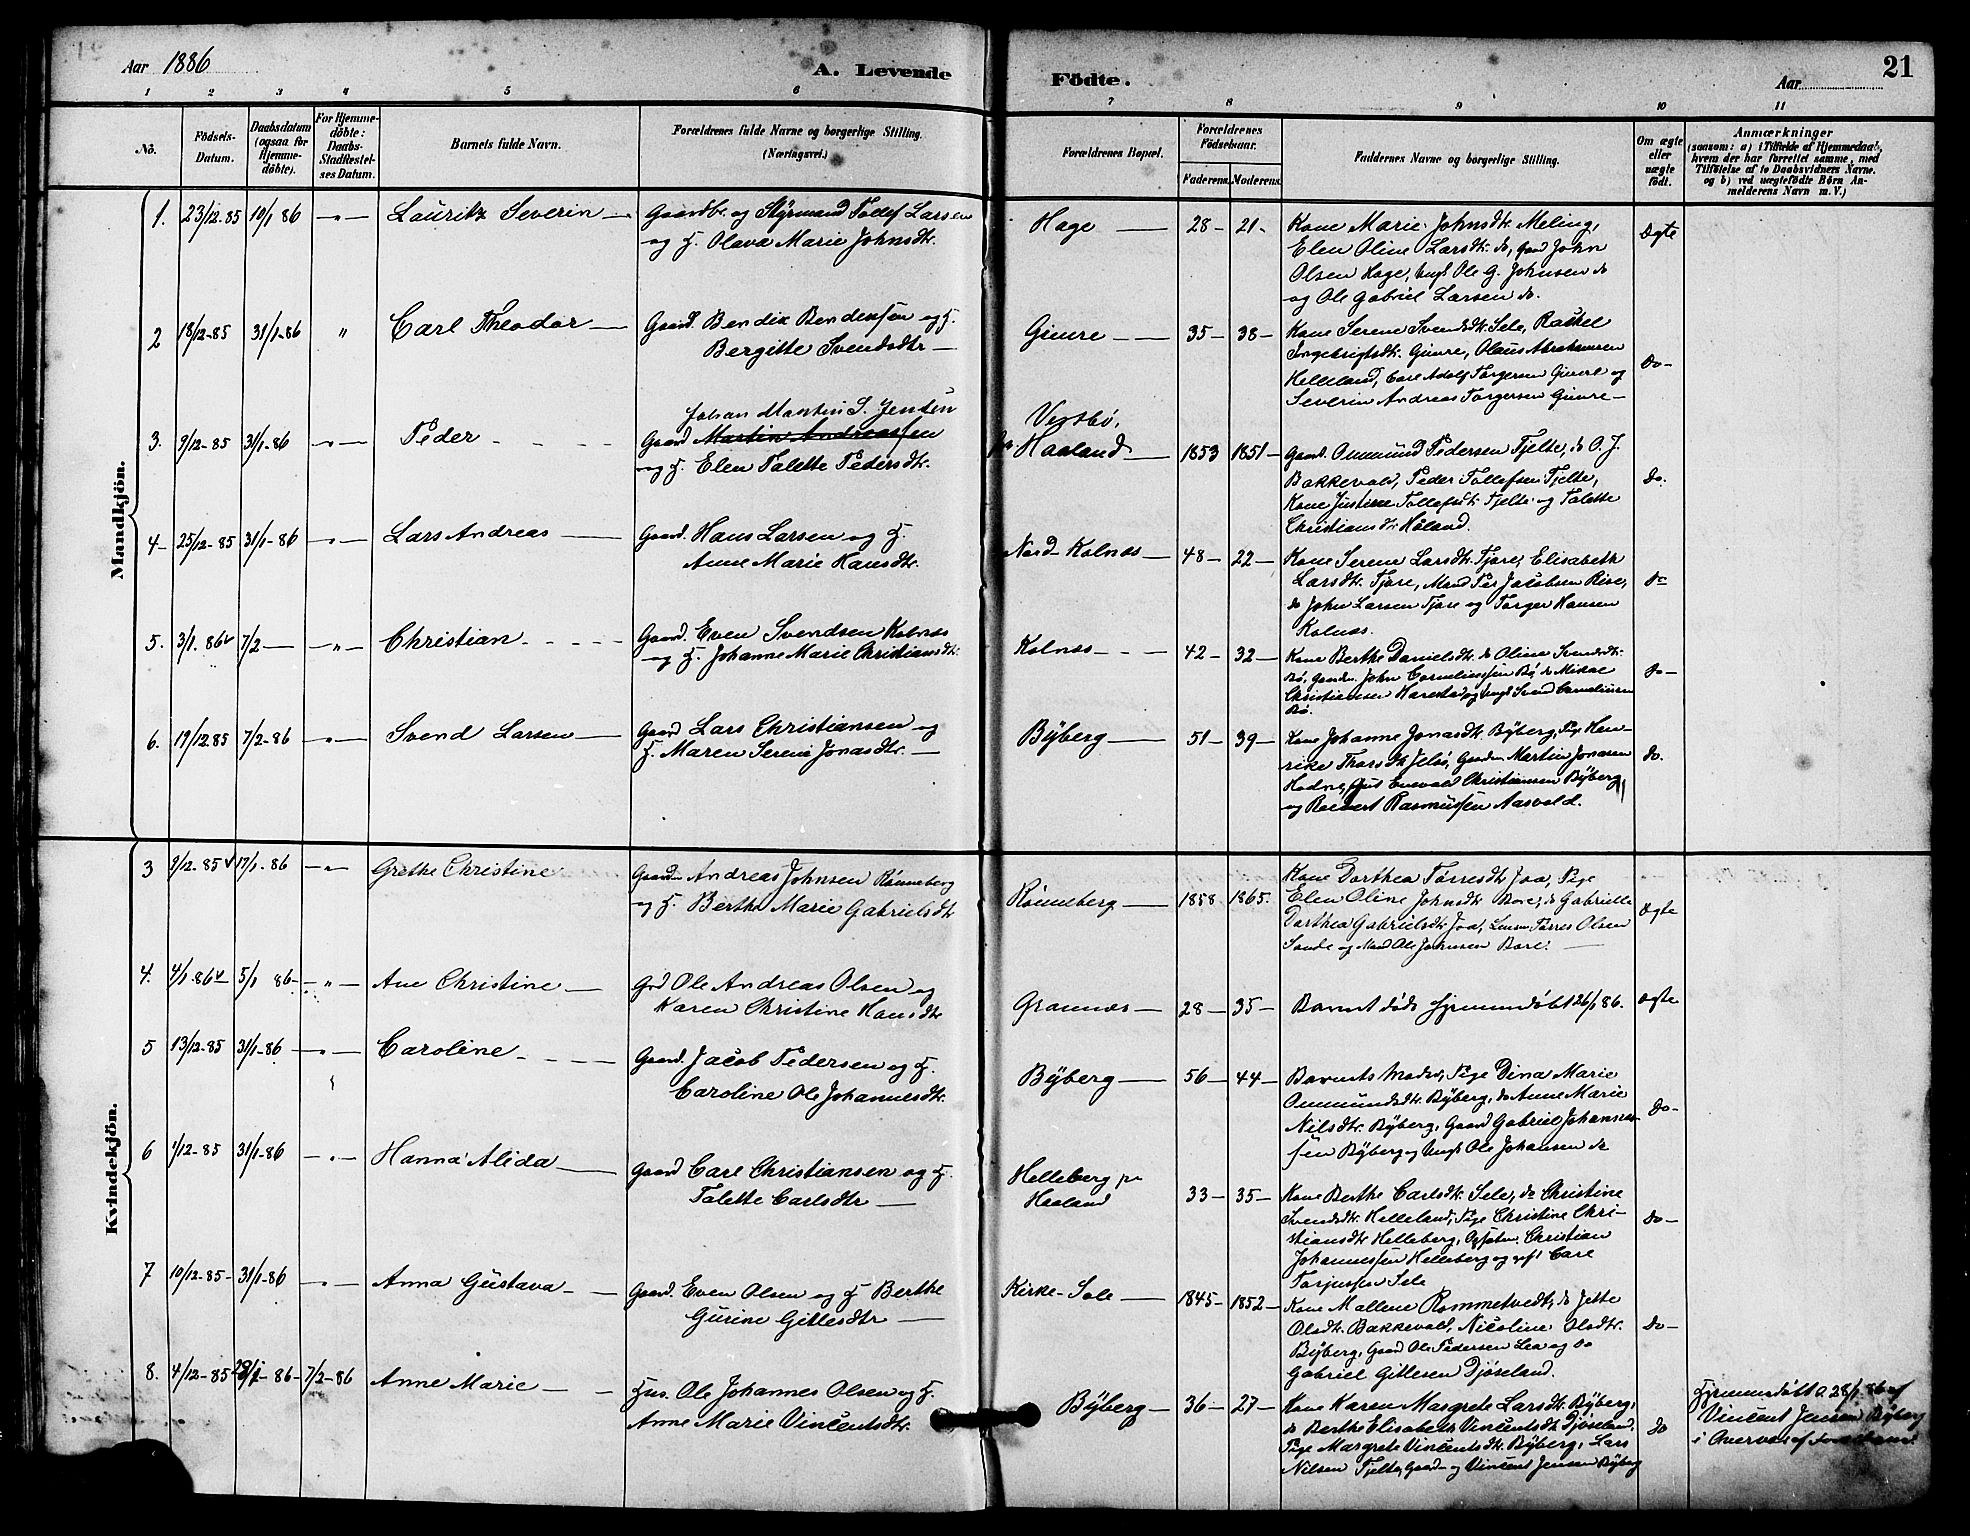 Aar 1886
A. Levende
Födte.
Aar
21
1 2 3 4 5 6 7 8 9 10 11
No.
Födsels-
Datum.
Daabsdatum
(ogsaa for
Hjemme-
döbte).
For Hjemme-
döbte:
Daabs-
Stadfæstel-
ses Datum.
Barnets fulde Navn.
Forældrenes fulde Navne og borgerlige Stilling.
(Næringsvei.)
Forældrenes Bopæl.
Forældrenes
Födselsaar.
Faderens. Moderens.
Faddernes Navne og borgerlige Stilling.
Om ægte
eller
uægte
födt.
Anmærkninger
(saasom: a) i Tilfælde af Hjemmedaab,
hvem der har forrettet samme, med
Tilföielse af to Daabsvidners Navne.
og b) ved uægtefödte Börn An-
melderens Navn m. V.)
Mandkjön.
1. 23/12 85 10/1 86 — " — Lauritz Severin — Gaardbr. og Styrmand Tollef Larsen
og H. Olava Marie Johnsdtr.
Hage — 28 — 21 — Kone Marie Johnsdtr. Meling,
Elen Oline Larsdtr. do, Gaard John
Olsen Hage, Ungk. Ole G. Johnsen do
og Ole Gabriel Larsen do.
Ægte
2 18/12-85 31/1-86 " Carl Theodor — Gaard. Bendik Bendiksen og H.
Bergitte Svendsdtr —
Gimre — 35 — 38 — Kone Serene Svendsdtr. Sele, Raskel
Ingebrigtsdtr. Gimre, Olaus Abrahamsen
Helleland, Carl Adolf Torgersen Gimre og
Severin Andreas Torgersen Gimre —
Do —
Johan Martin S. Jensen
3. 9/12-85 31/1-86 — " — Peder — Gaard Martin Andreassen
og H. Elen Talette Pedersdtr.
Vestbø,
Haaland — 1853 1851 — Gaard. Ommund Pedersen Tjelte, do O. J.
Bakkevold, Peder Tollefsen Tjelte,
Kone Justine Tollefsdtr. Tjelte og Talette
Christiansdtr Håland.
Do.
4 — 25/12-85 31/1-86 — " — Lars Andreas — Gaard. Hans Larsen og H.
Anne Marie Hansdtr.
Nord-Kolnæs — 48 — 22 — Kone Serene Larsdtr. Tjore, Elisabeth
Larsdtr. Tjore, Mand Per Jacobsen Risa,
do John Larsen Tjore og Torger Hansen
Kolnæs.
Do
5. 3/1. 86 7/2 — — " — Christian — Gaard. Even Svendsen Kolnæs
og H. Johanne Marie Christiansdtr.
Kolnæs — 42 — 32 — Kone Berthe Danielsdtr. do Oline Svendsdtr.
Bø, Gaardm. John Corneliussen Bø, do Mikal
Christiansen Harestad og Ungk Svend Corneliusen
Bø.
Do —
6. 19/12.85 7/2-86 — " — Svend Larsen — Gaard Lars Christiansen og
H. Maren Serene Jonasdtr. —
Byberg — 51 — 39 — Kone Johanne Jonasdtr. Byberg, Pige Hen-
rike Thorsdtr. Jelsø, Gaardm Martin Jonasen
Hodne, Enevald Christiansen Byberg
og Rasmussen Aasvold.
Do.
Kvindekjön.
3 9/12-85 17/1-86 — " — Grethe Christine Gaardm Andreas Johnsen Rønneberg
og H. Berthe Marie Gabrielsdtr
Rønneberg — 1858 — 1865. Kone Dorthea Tørresdtr Joa, Pige
Elen Oline Johnsdtr. Bore, do Gabrielle
Dorthea Gabrielsdtr Joa, Lensm Tørres Olsen
Sande og Mand Ole Johnsen Bore. —
Ægte
4. 4/1.86 5/1 86 — — " — Ane Christine — Grd Ole Andreas Olsen og
Karen Christine Hansdtr
Grannæs — 28 — 35 — Barnet døde hjemmedøbt 26/1 86. Ægte
5 13/12-85 31/1-86 — " — Caroline — Gaard. Jacob Pedersen og H.
Caroline Ole Johannesdtr.
Byberg — 56 — 44 — Barnets Moder, Pige Dina Marie
Ommundsdtr. Byberg, do Anne Marie
Nilsdtr. Byberg, Gaard Gabriel Johannes-
sen Byberg og Ungk Ole Johansen do
Do —
6 1/12-85 31/1-86 — " — Hanna Alida — Gaard Carl Christiansen og H.
Talette Carlsdtr —
Helleberg pr
Haaland 33 — 35 — Kone Berthe Carlsdtr. Sele, do Christine
Svendsdtr. Helleland, Pige Christine Chri-
stiansdtr Helleberg, Christian
Johannessen Helleberg og Carl
Torjussen Sele
Do —
7 10/12-85 — 31/1-86 — " — Anna Gustava — Gaard. Even Olsen og H Berthe
Gurine Gittesdtr —
Kirke-Sole — 1845 — 1852 — Kone Mallene Rommetvedt, do Jette
Olsdtr. Bakkevold, Nicoline Olsdtr.
Byberg, Gaard Ole Pedersen Lea og do
Gabriel Gittesen Djøseland.
Do —
8. 4/12-85 28/1-86 — 7/2-86 Anne Marie — Hus. Ole Johannes Olsen og H.
Anne Marie Vincentsdtr.
Byberg — 36 — 27 — Kone Karen Margrete Larsdtr. Byberg,
do Berthe Elisabeth Vincentsdtr Djøseland,
Pige Margrete Vincentsdtr. Byberg, Lars
Nilsen Tjelte, Gaard — og Vincent Jensen Byberg
Do
Hjemmedøbt 28/1 86 af
Vincent Jensen Byberg
i Overvær af